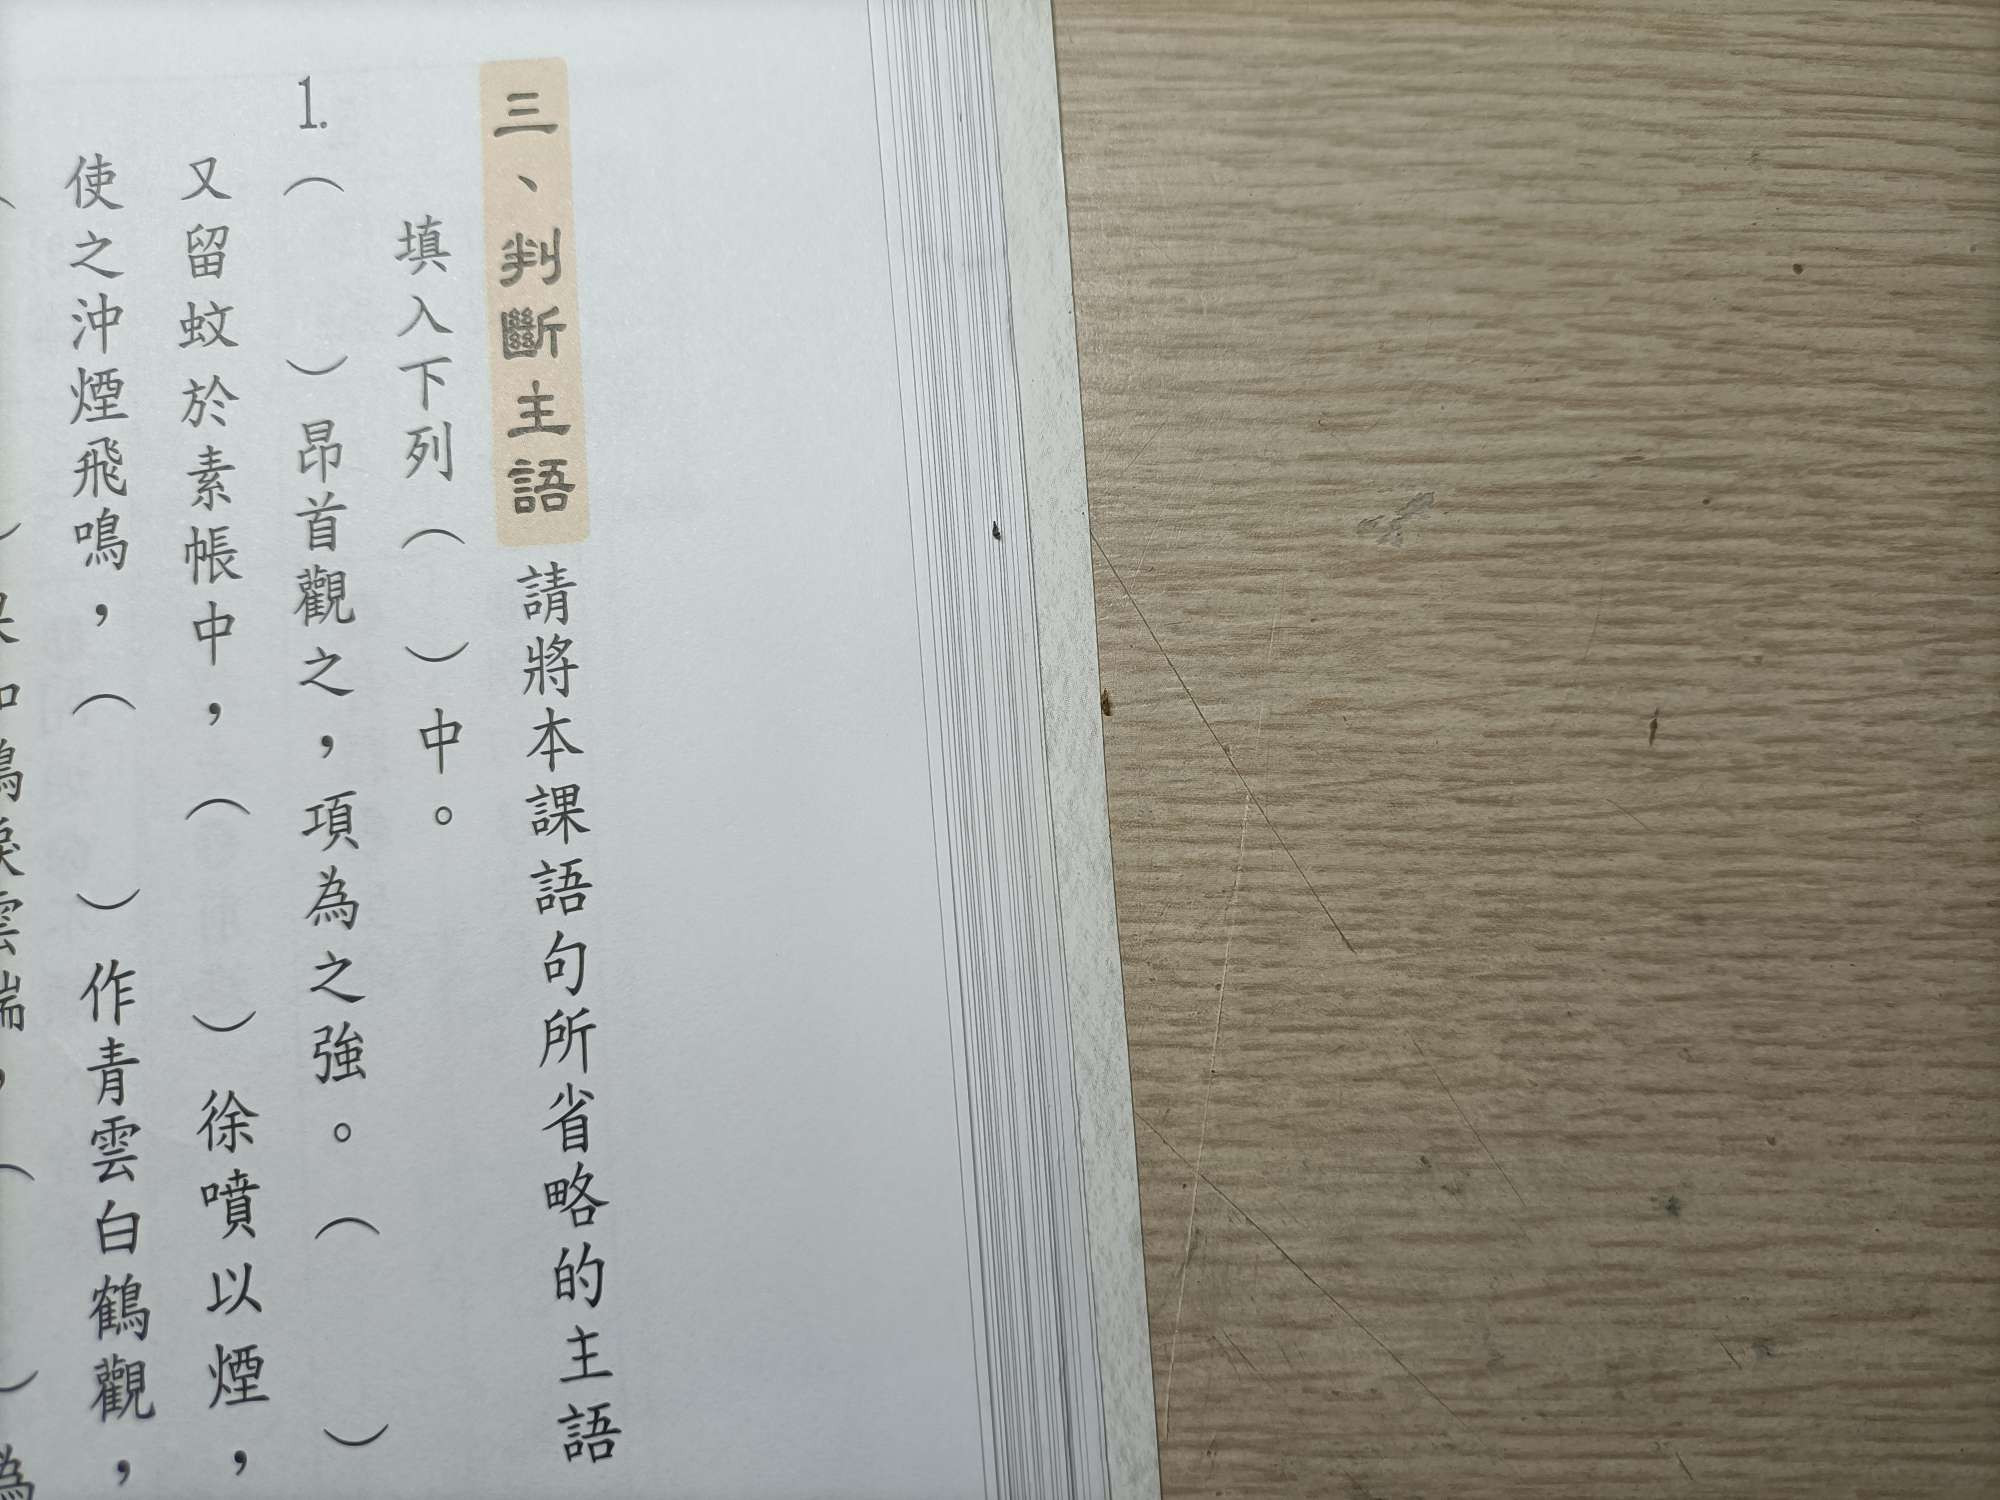 三、判斷主語 請將本課語句所省略的主語
填入下列（ ）中。
1.（ ）昂首觀之，項為之強。（ ）
又留蚊於素帳中，（ ）徐噴以煙，
使之沖煙飛鳴，（ ）作青雲白鶴觀，
（ ）果如鶴唳雲端，（ ）為